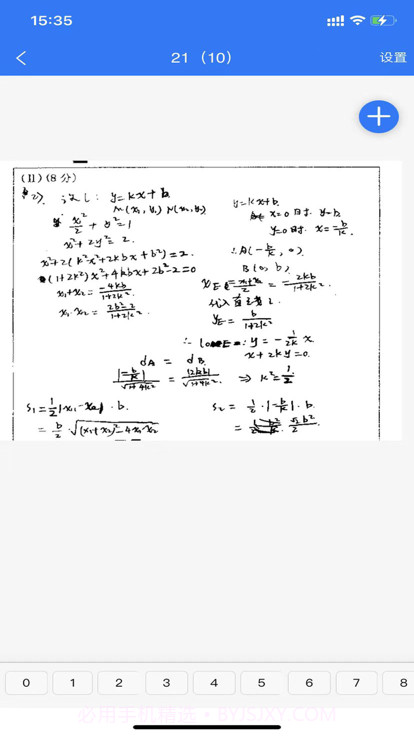 15:35
21（10）
设置
(II)(8分)
(2). 设 l: y=kx+b
M(x₁, y₁) N(x₂, y₂)
x²/2 + y²=1
x²+2y²=2.
x²+2(k²x²+2kbx+b²)=2
(1+2k²)x²+4kbx+2b²-2=0
x₁+x₂ = -4kb/1+2k²
x₁·x₂ = 2b²-2/1+2k²
y=kx+b.
x=0时 y=b
y=0时 x=-b/k
∴A(-b/k, 0)
B(0, b)
x_E = x₁+x₂/2 = -2kb/1+2k²
代入直线 l
y_E = b/1+2k²
∴ l_OE: y = -1/2k x
x+2ky=0.
d_A = d_B
|-b/k|/√1+4k² = |2kb|/√1+4k² ⇒ k²=1/2
S₁=1/2|x₁-x₂|·b
= b/2·√(x₁+x₂)²-4x₁x₂
S₂ = 1/2·|-b/k|·b
= √2b²/2
0 1 2 3 4 5 6 7 8
必用手机精选·BYJSJXY.COM